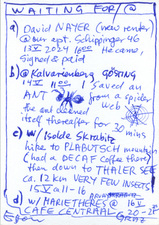 WAITING FOR/@
a) David NAYER (new renter
@ our apt. Schippinger 46
13 V 2024 16oo He came
Signed & paid
b) @Kalvarienberg GÖSTING
14 V 11oo I saved an
ANT from a spider
web
the ant cleaned
itself thereafter for 30 mins
c) w/ Isolde Skrabitz
hike to PLABUTSCH mountain
(had a DECAF Coffee there)
then down to THALER SEE
ca. 12 km VERY FEW INSECTS
15 V ca 11-16
d) w/ HARIETHERES @ 16 V
CAFE CENTRAAL 20-2
Graz